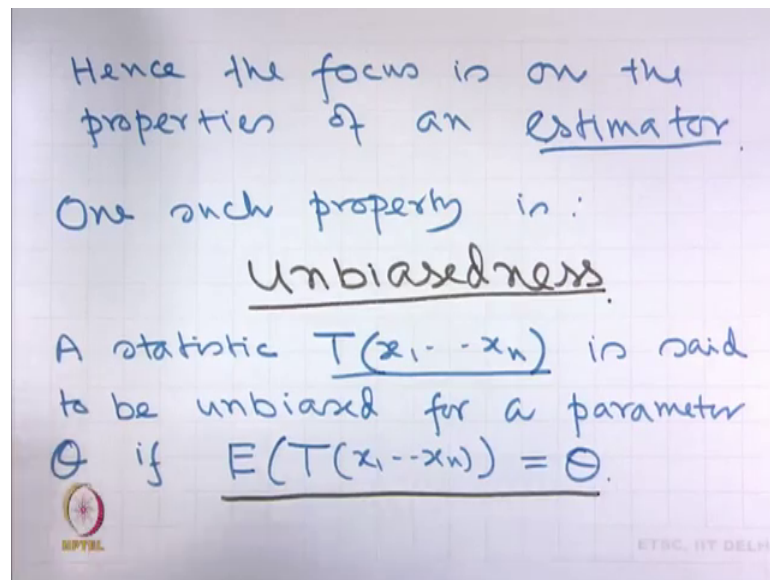 Hence the focus is on the
properties of an estimator.
One such property is:
Unbiasedness.
A statistic T(x1 - - xn) is said
to be unbiased for a parameter
θ if E(T(x1 - - xn)) = θ.
NPTEL
ETSC, IIT DELH